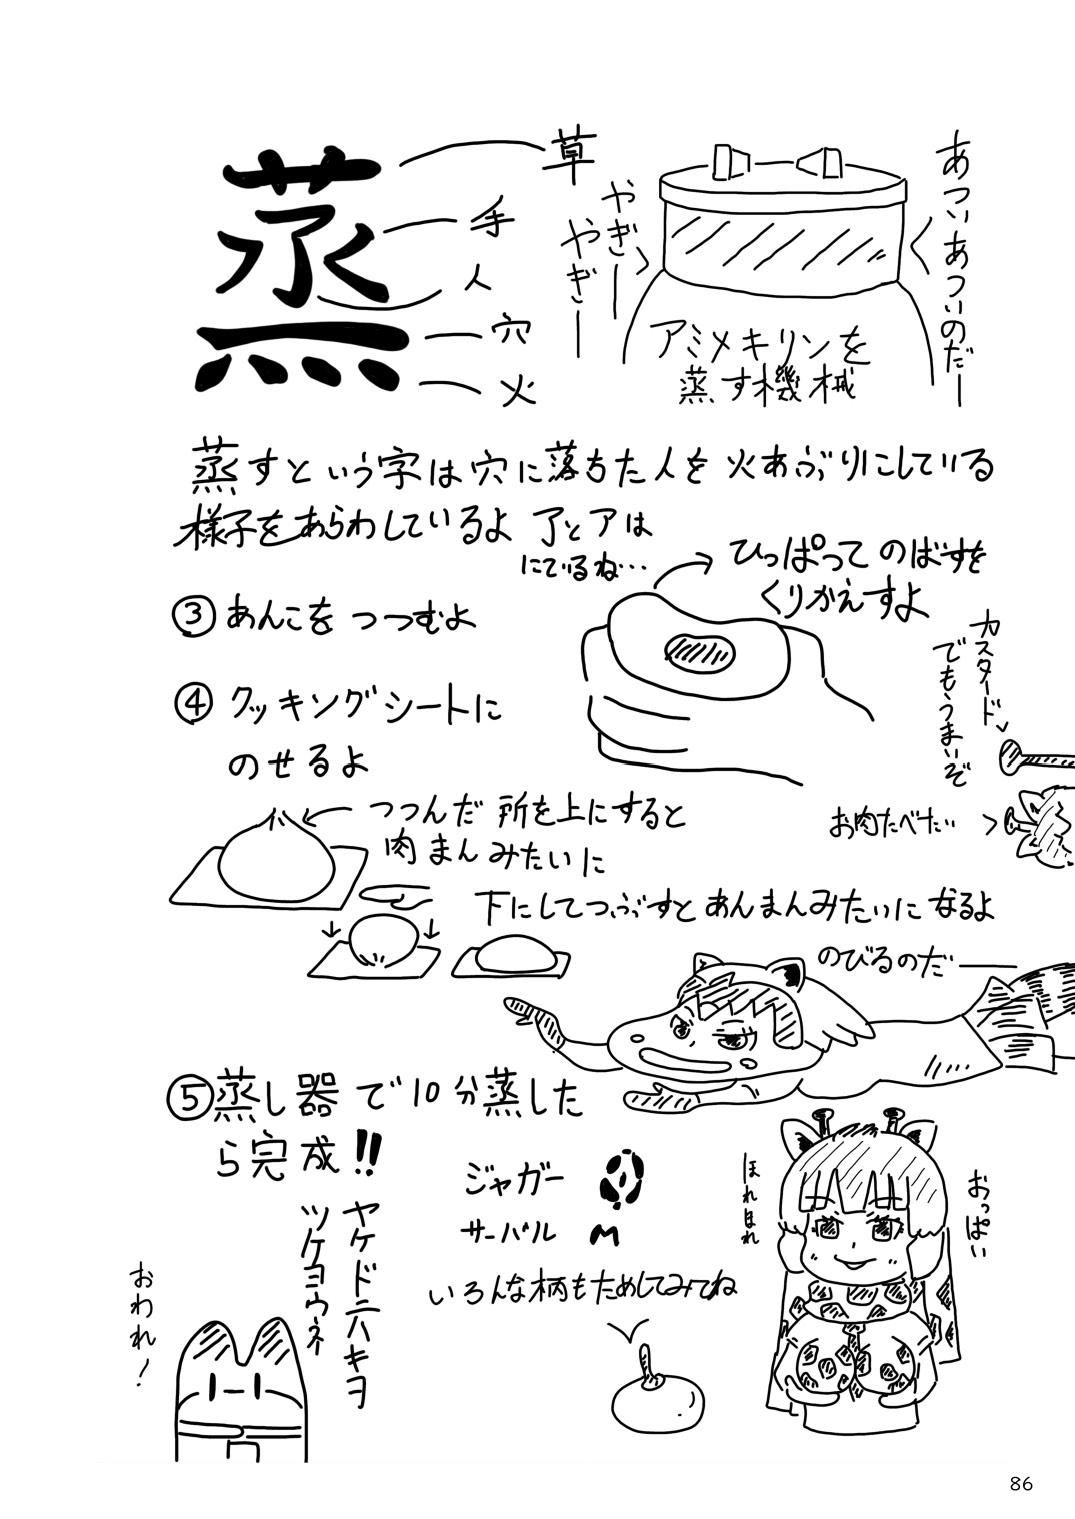 蒸
草
手
人
穴
火
やぎー
やぎー
あついあついのだー
アミメキリンを
蒸す機械
蒸すという字は穴に落ちた人を火あぶりにしている
様子をあらわしているよ 了とアは
にているね…
③あんこをつつむよ
ひっぱってのばすを
くりかえすよ
④クッキングシートに
のせるよ
カスタード
でもうまいぞ
お肉たべたい
つつんだ所を上にすると
肉まんみたいに
下にしてつぶすとあんまんみたいになるよ
のびるのだー
⑤蒸し器で10分蒸した
ら完成!!
ジャガー
サーバル
いろんな柄もためしてみてね
ほれほれ
おっぱい
蒸 蒸
ヤケドニハキヲ
ツケヨウネ
おわれ!
86